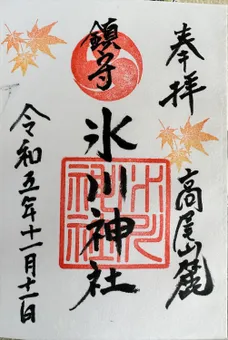 奉拝
高尾山麓
鎮守
氷川神社
令和五年十一月十一日